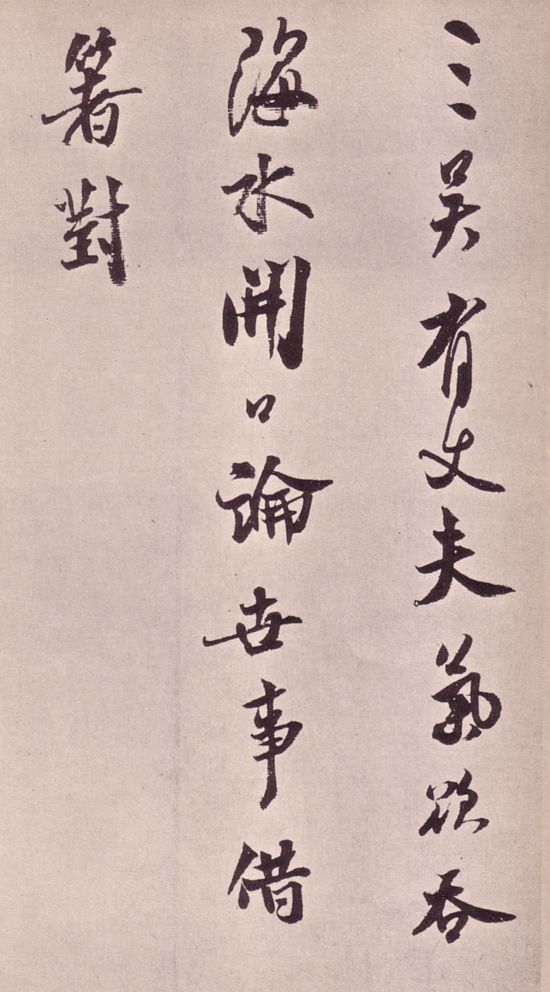 三吴有丈夫氣欲吞
海水開口論世事借
箸對